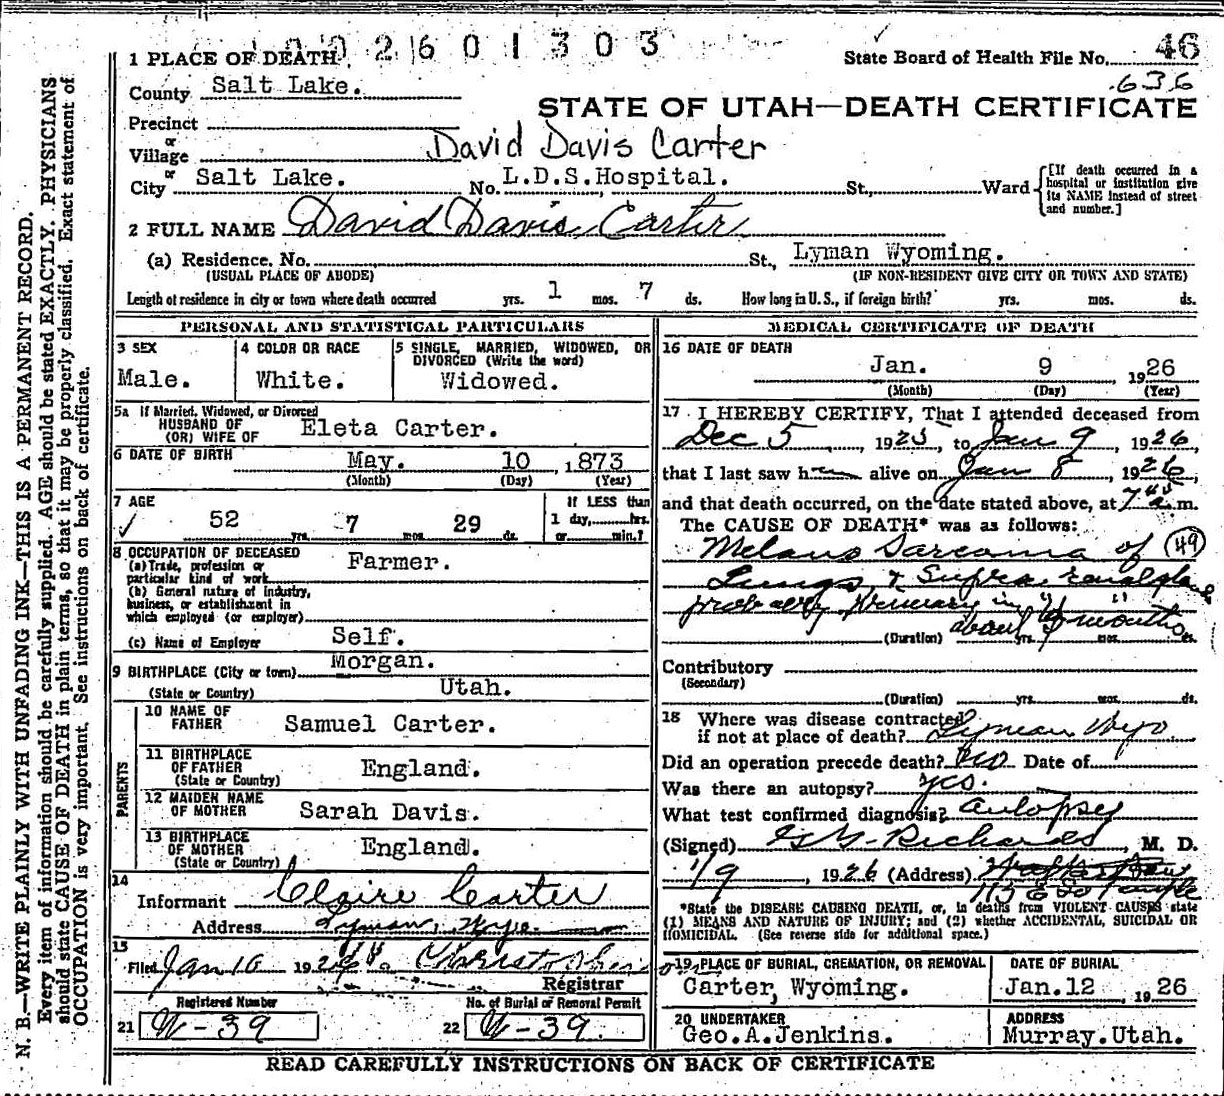 0 0 2 6 0 1 3 0 3
1 PLACE OF DEATH
State Board of Health File No. 46
636
County Salt Lake.
STATE OF UTAH—DEATH CERTIFICATE
Precinct
or
Village
David Davis Carter
or
City Salt Lake. No. L.D.S.Hospital. St., Ward
[If death occurred in a hospital or institution give its NAME instead of street and number.]
2 FULL NAME David Davis Carter
(a) Residence, No. St., Lyman Wyoming.
(USUAL PLACE OF ABODE) (IF NON-RESIDENT GIVE CITY OR TOWN AND STATE)
Length of residence in city or town where death occurred yrs. 1 mos. 7 ds. How long in U.S., if foreign birth? yrs. mos. ds.
PERSONAL AND STATISTICAL PARTICULARS
3 SEX
Male.
4 COLOR OR RACE
White.
5 SINGLE, MARRIED, WIDOWED, OR
DIVORCED (Write the word)
Widowed.
5a If Married, Widowed, or Divorced
HUSBAND OF
(OR) WIFE OF Eleta Carter.
6 DATE OF BIRTH May. 10, 1873
(Month) (Day) (Year)
7 AGE
52 yrs. 7 mos. 29 ds.
If LESS than
1 day, hrs.
or min.?
8 OCCUPATION OF DECEASED
(a) Trade, profession or
particular kind of work Farmer.
(b) General nature of Industry,
business, or establishment in
which employed (or employer)
(c) Name of Employer Self.
9 BIRTHPLACE (City or town) Morgan.
(State or Country) Utah.
PARENTS
10 NAME OF
FATHER Samuel Carter.
11 BIRTHPLACE
OF FATHER England.
(State or Country)
12 MAIDEN NAME
OF MOTHER Sarah Davis.
13 BIRTHPLACE
OF MOTHER England.
(State or Country)
14
Informant Claire Carter
Address Lyman, Wyo.
15
Filed Jan 10 1926 Christopherson
Registrar
Registered Number
21 W-39
No. of Burial or Removal Permit
22 W-39.
MEDICAL CERTIFICATE OF DEATH
16 DATE OF DEATH
Jan. 9 1926
(Month) (Day) (Year)
17 I HEREBY CERTIFY, That I attended deceased from
Dec 5, 1925, to Jan 9, 1926
that I last saw him alive on Jan 8, 1926
and that death occurred, on the date stated above, at 7 45 a.m.
The CAUSE OF DEATH* was as follows:
Melano Sarcoma of 49
Lungs & Supra renal gland
probably primary in " "
(Duration) about months
yrs. mos. ds.
Contributory
(Secondary)
(Duration) yrs. mos. ds.
18 Where was disease contracted
if not at place of death? Lyman Wyo
Did an operation precede death? no Date of
Was there an autopsy? yes.
What test confirmed diagnosis? autopsy
(Signed) G G Richards, M. D.
1/9, 1926 (Address)
113 E So Temple
*State the DISEASE CAUSING DEATH, or, in deaths from VIOLENT CAUSES state
(1) MEANS AND NATURE OF INJURY; and (2) whether ACCIDENTAL, SUICIDAL OR
HOMICIDAL. (See reverse side for additional space.)
19 PLACE OF BURIAL, CREMATION, OR REMOVAL
Carter, Wyoming.
DATE OF BURIAL
Jan.12, 1926
20 UNDERTAKER
Geo.A.Jenkins.
ADDRESS
Murray.Utah.
READ CAREFULLY INSTRUCTIONS ON BACK OF CERTIFICATE
N. B.—WRITE PLAINLY WITH UNFADING INK—THIS IS A PERMANENT RECORD.
Every item of information should be carefully supplied. AGE should be stated EXACTLY. PHYSICIANS
should state CAUSE OF DEATH in plain terms, so that it may be properly classified. Exact statement of
OCCUPATION is very important. See instructions on back of certificate.